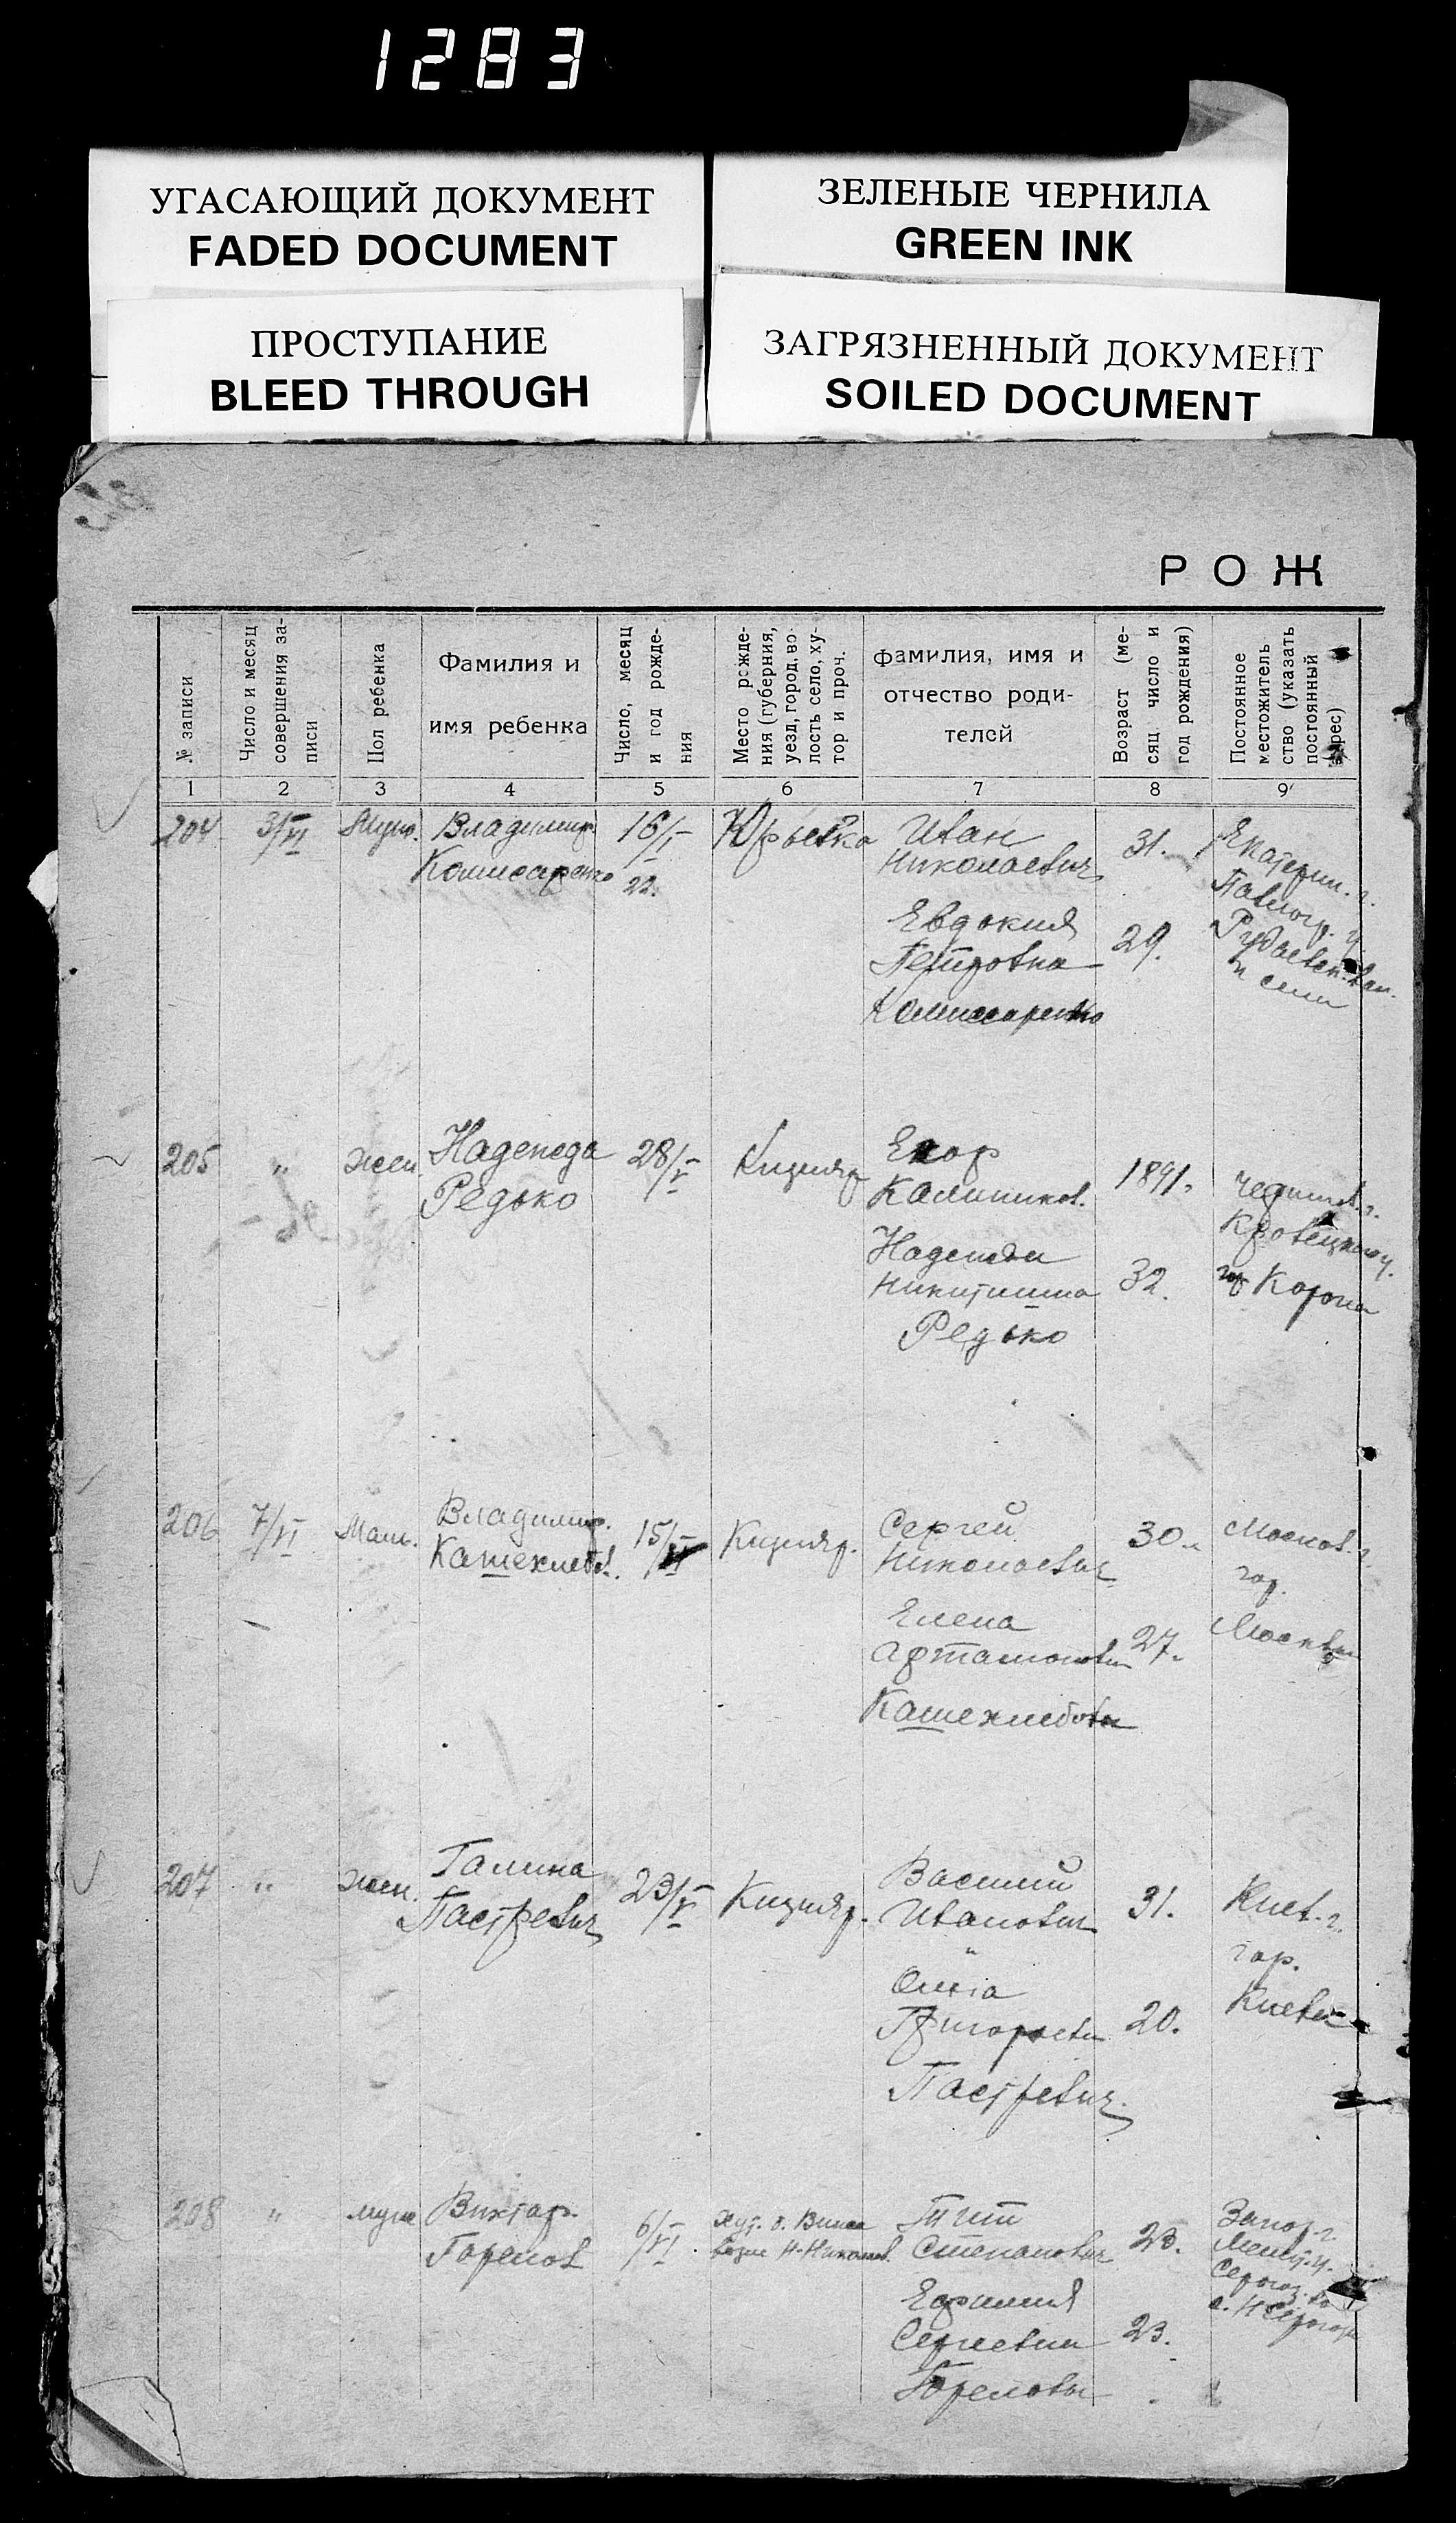 1283
УГАСАЮЩИЙ ДОКУМЕНТ
FADED DOCUMENT
ЗЕЛЕНЫЕ ЧЕРНИЛА
GREEN INK
ПРОСТУПАНИЕ
BLEED THROUGH
ЗАГРЯЗНЕННЫЙ ДОКУМЕНТ
SOILED DOCUMENT
РОЖ
№ записи
Число и месяц
совершения за-
писи
Пол ребенка
Фамилия и
имя ребенка
Число, месяц
и год рожде-
ния
Место рожде-
ния (губерния,
уезд, город, во-
лость село, ху-
тор и проч.
фамилия, имя и
отчество роди-
телей
Возраст (ме-
сяц число и
год рождения)
Постоянное
местожитель
ство (указать
постоянный
адрес)
1 2 3 4 5 6 7 8 9
204
3/VI
Муж.
Владимир
Комисаренко
16/I
22.
Юрьевка
Иван
Николаевич
Евдокия
Петровна
Комиссаренко
31.
29.
Екатерин. г.
Павлогр. у.
205
"
жен
Надежда
Редько
28/V
Егор
Калиников.
Надежда
Никитишна
Редько
1891.
32.
206
7/VI
Владимир.
15/VI
Сергей
Николаевич
Елена
Артамоновн
30.
27.
Москов. г.
гор.
Москва
207
"
жен.
Галина
Пастревич
23/V
Василий
Иванович
"
Ольга
Григорьевн
Пастревич.
31.
20.
Киев. г.
гор.
Киева
208
"
муж
Виктор.
Горелов
6/VI
Тит
Степанович
Ефимия
Сергеевна
Гореловы
23.
23.
Запор. г.
Мелит. у.